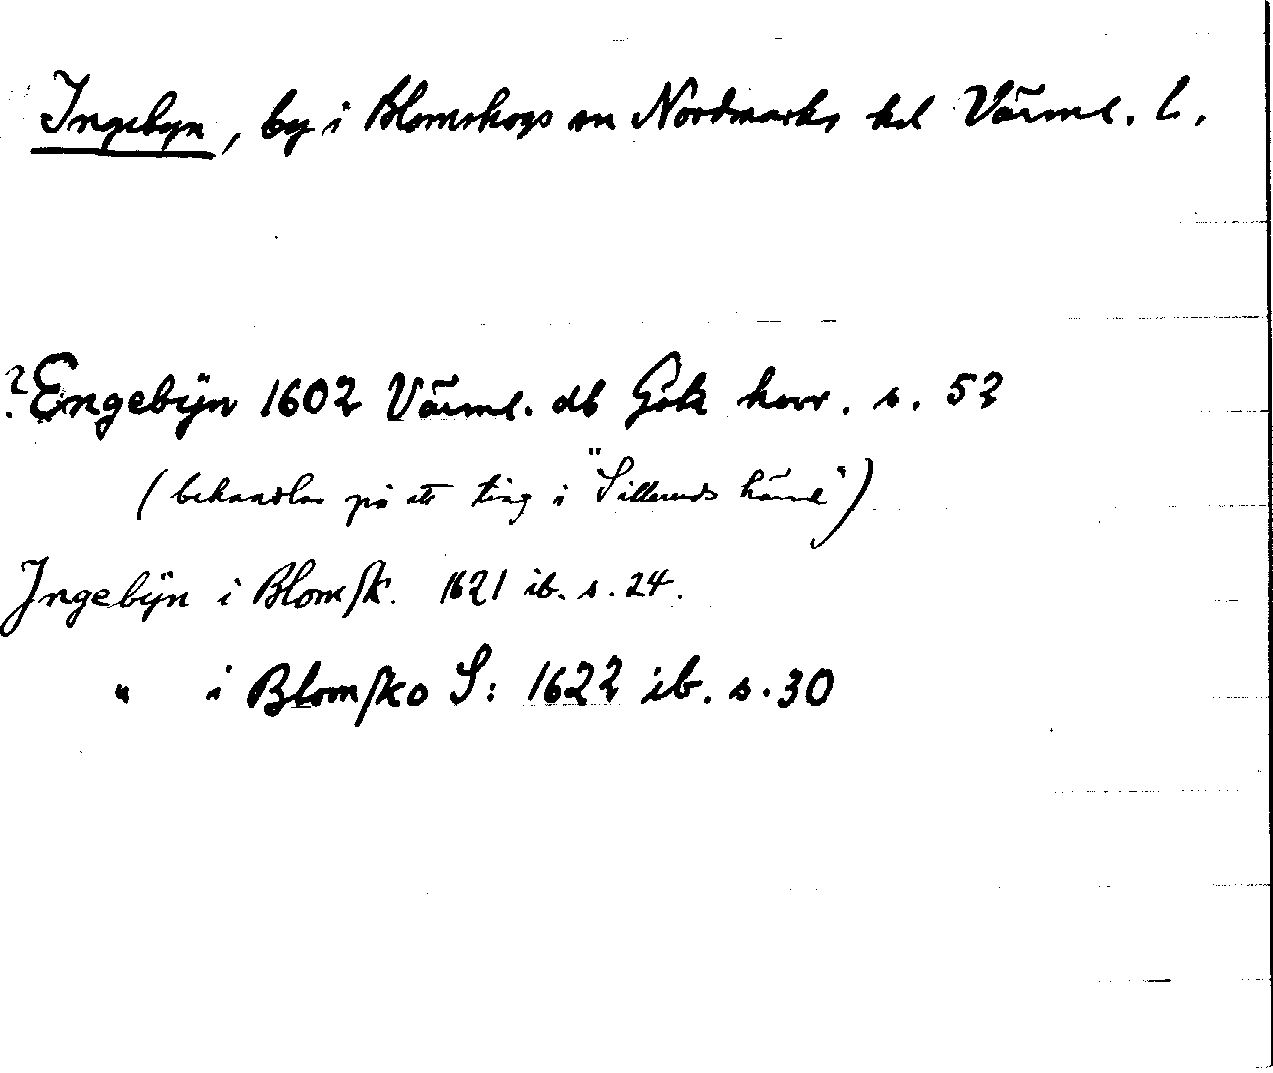 Ingebyn, by i Blomskogs sn Nordmarks hd Värml. l.
? Engebÿn 1602 Värml. db Götk korr. s. 52
(behandlas på ett ting i "Silleruds härad")
Ingebÿn i Blomſk. 1621 ib. s. 24.
" i Blomſko S: 1622 ib. s. 30